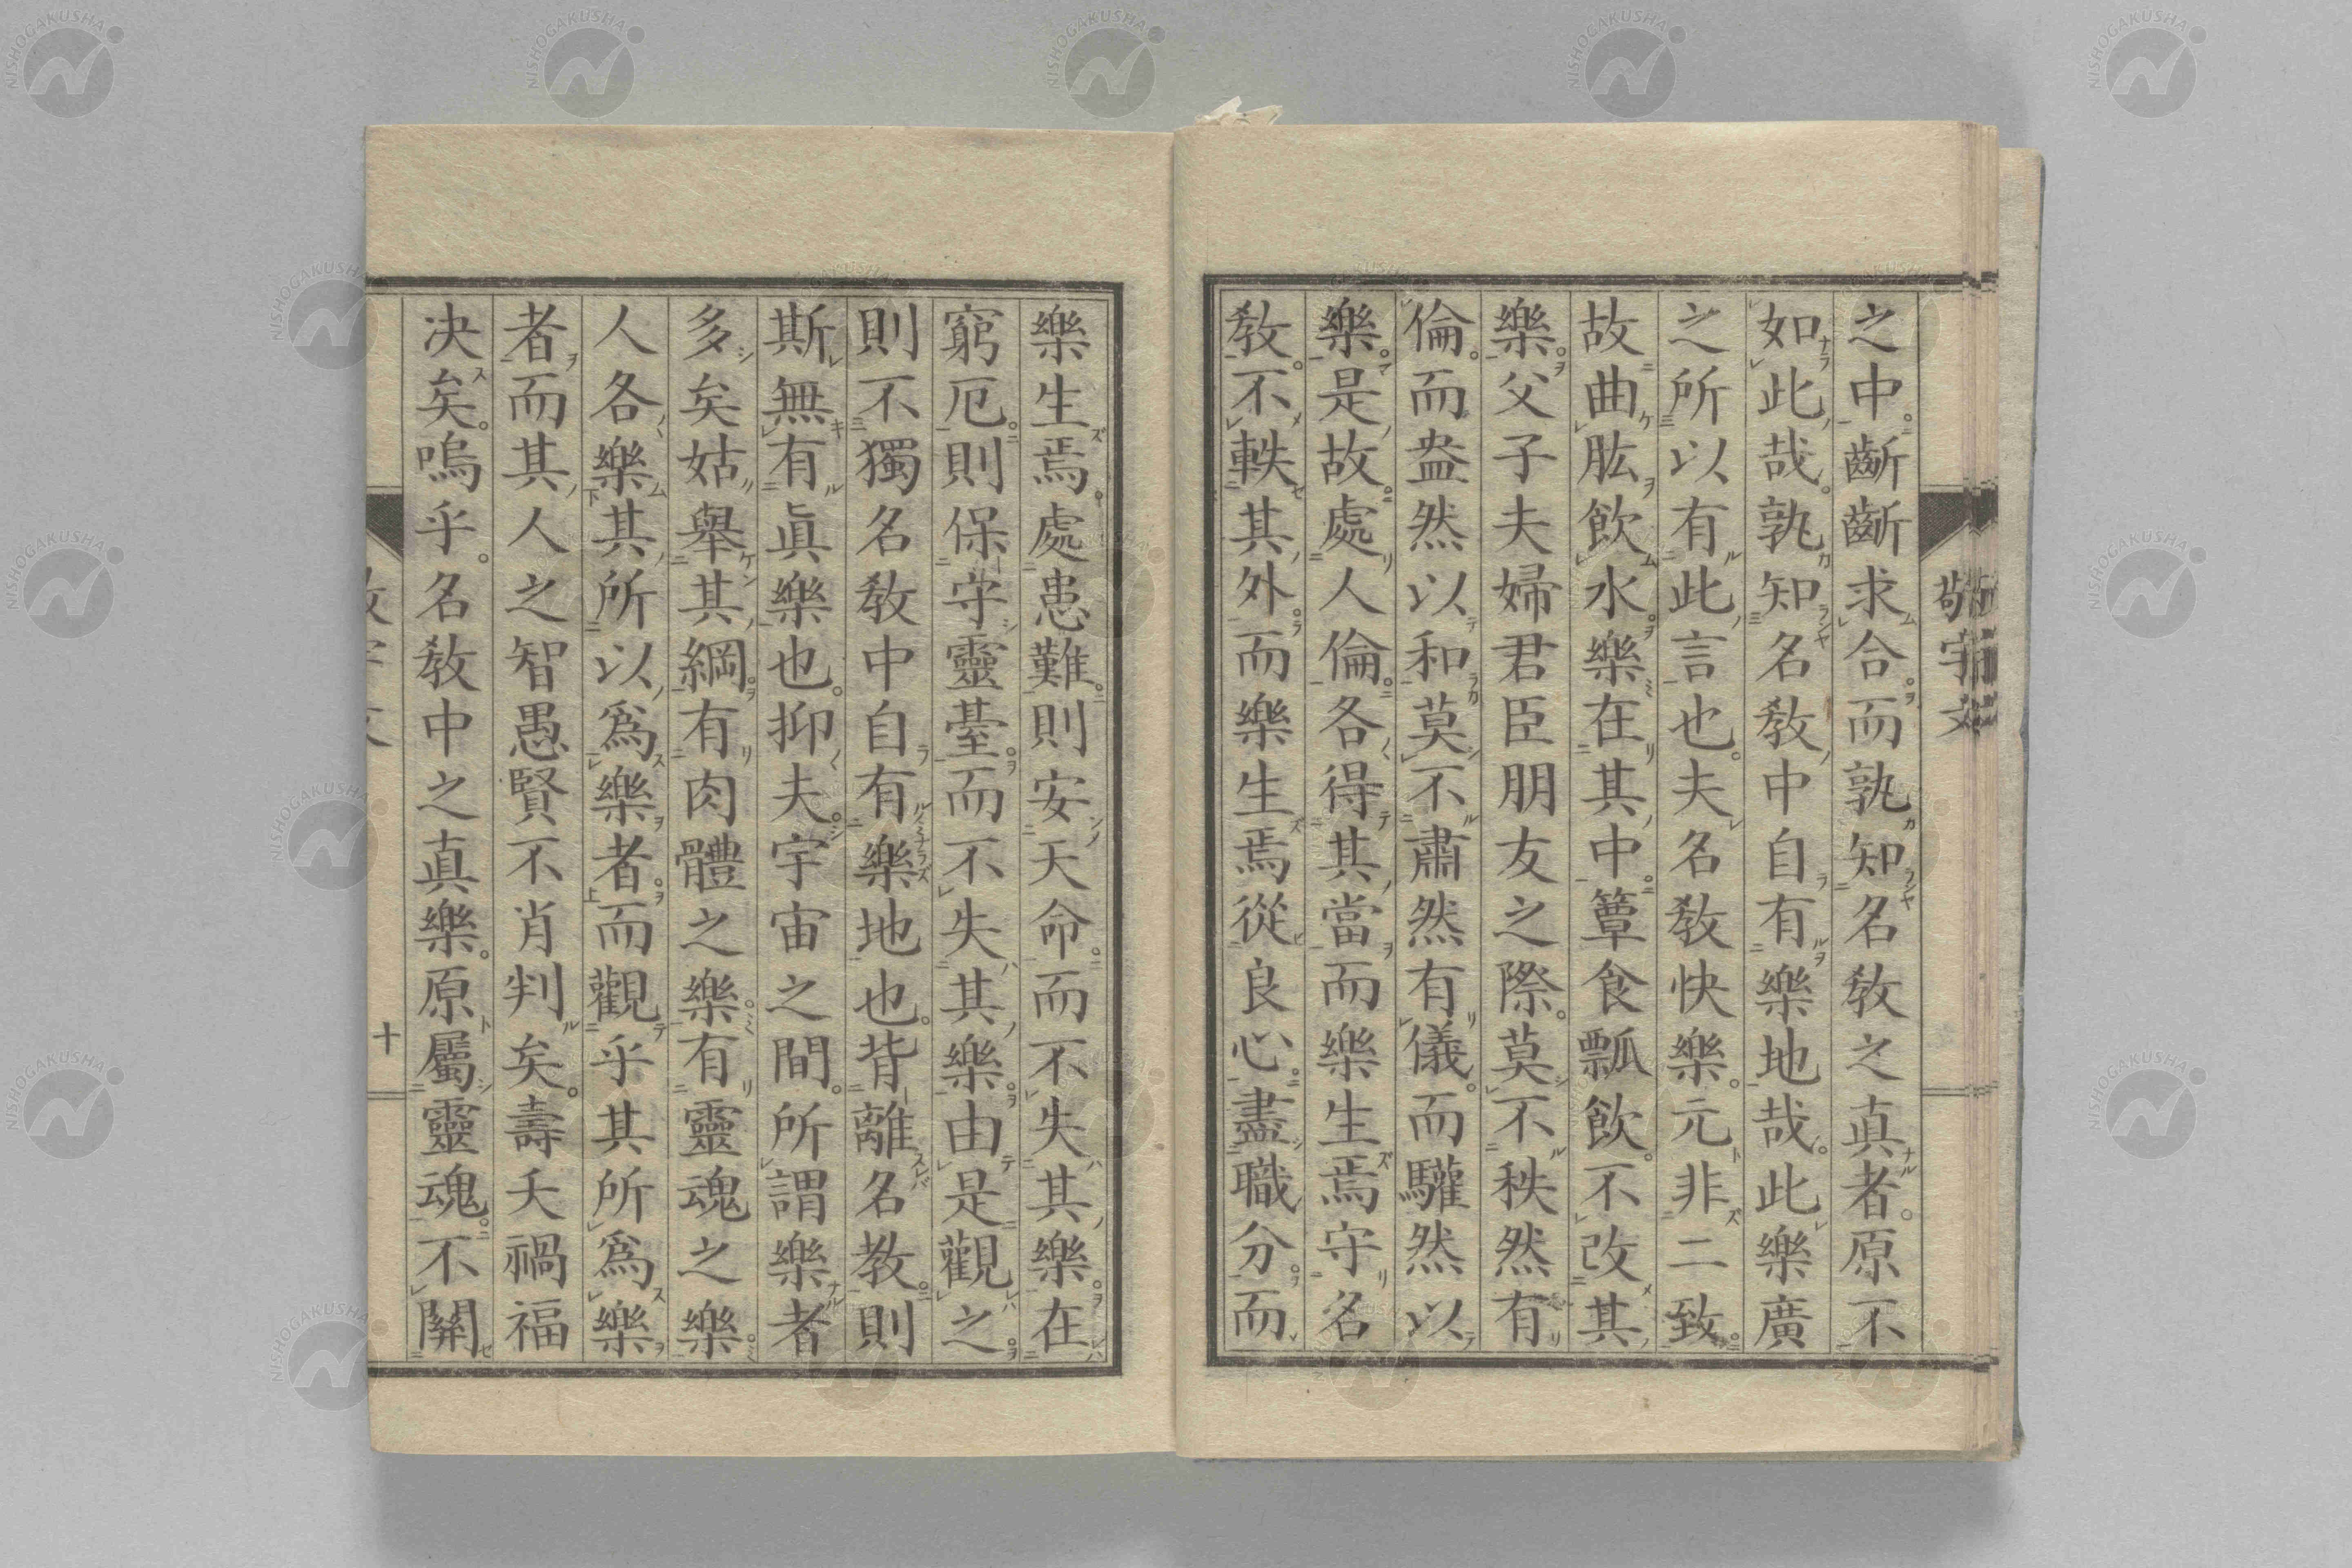 敬宇文
之中。齗齗求合。而孰知名敎之眞者。原不
如此哉。孰知名敎中自有樂地哉。此樂廣
之所以有此言也。夫名敎快樂。元非二致。
故曲肱飮水。樂在其中。簞食瓢飮。不改其
樂。父子夫婦君臣朋友之際。莫不秩然有
倫。而盎然以和。莫不肅然有儀。而驩然以
樂。是故處人倫。各得其當而樂生焉。守名
敎。不軼其外。而樂生焉。從良心。盡職分。而
樂生焉。處患難。則安天命。而不失其樂。在
窮厄。則保守靈臺。而不失其樂。由是觀之。
則不獨名敎中自有樂地也。背離名敎。則
斯無有眞樂也。抑夫宇宙之間。所謂樂者
多矣。姑擧其綱。有肉體之樂。有靈魂之樂。
人各樂其所以爲樂者。而觀乎其所爲樂
者。而其人之智愚賢不肖判矣。壽夭禍福
决矣。嗚乎。名敎中之眞樂。原屬靈魂。不關
十
NISHOGAKUSHA